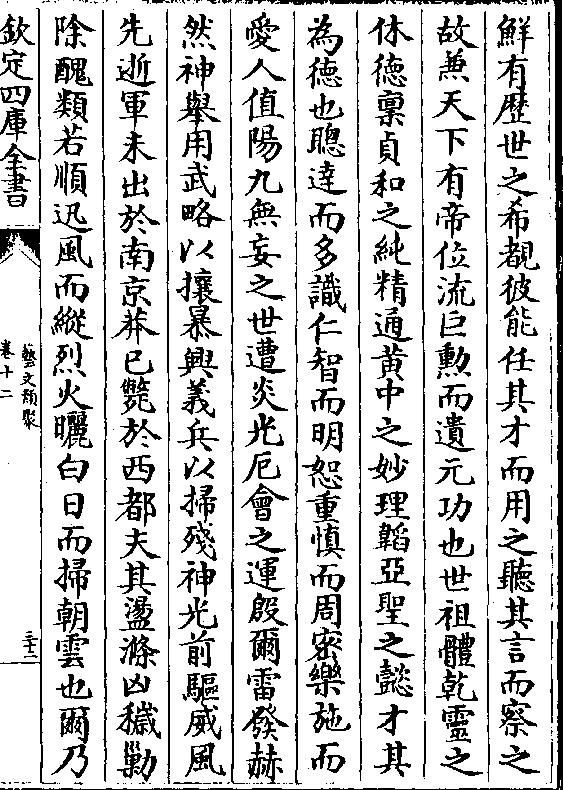 鮮有歴世之希覩彼能任其才而用之聽其言而察之
故兼天下有帝位流巨勲而遺元功也世祖體乾靈之
休徳禀貞和之純精通黄中之妙理韜亞聖之懿才其
為徳也聰達而多識仁智而明恕重慎而周密樂施而
愛人值陽九無妄之世遭炎光厄會之運殷爾雷發赫
然神舉用武略以攘暴興義兵以掃殘神光前驅威風
先逝軍未出於南京莽已斃於西都夫其盪滌凶穢勦
除醜類若順迅風而縱烈火曬白日而掃朝雲也爾乃
欽定四庫全書
藝文類聚
卷十二
三十二